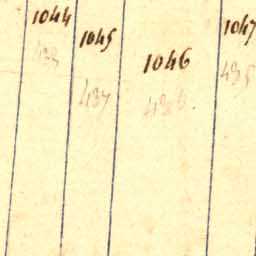 1044
438
1045
437
1046
436.
1047
435